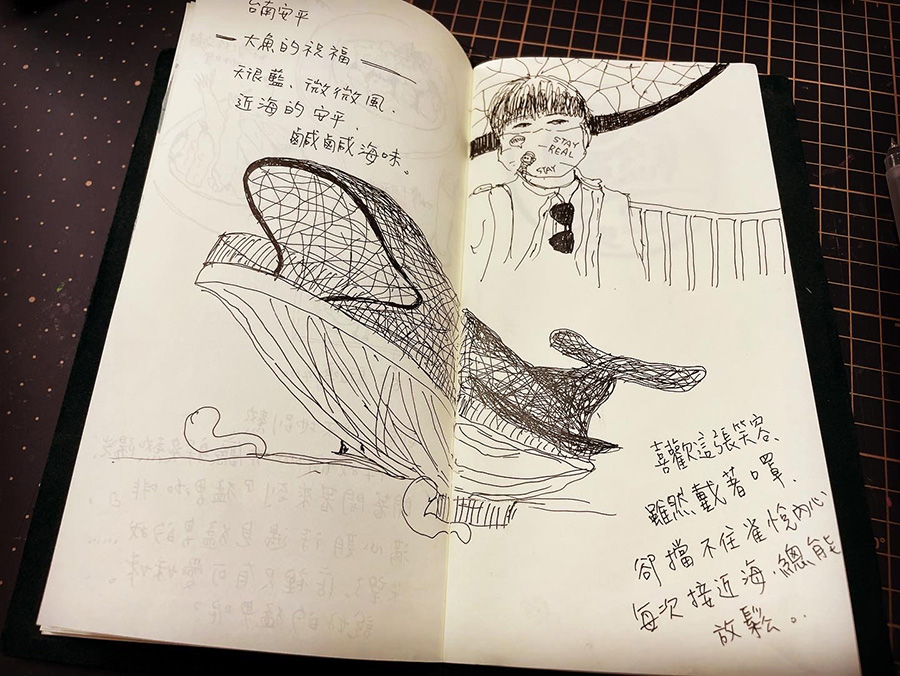 台南安平
一大魚的祝福一
天很藍、微微風、
近海的安平,
鹹鹹海味。
STAY
REAL
STAY
喜歡這張笑容、
雖然戴著口罩、
卻擋不住雀悅內心
每次接近海,總能
放鬆。